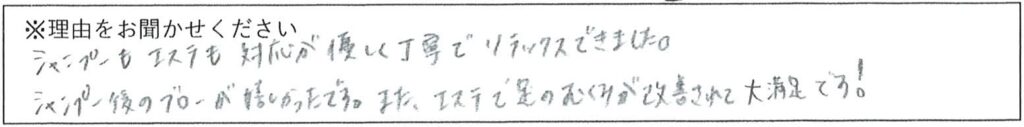 ※理由をお聞かせください
シャンプーもエステも対応が優しく丁寧でリラックスできました。
シャンプー後のブローが嬉しかったです。また、エステで足のむくみが改善されて大満足です！